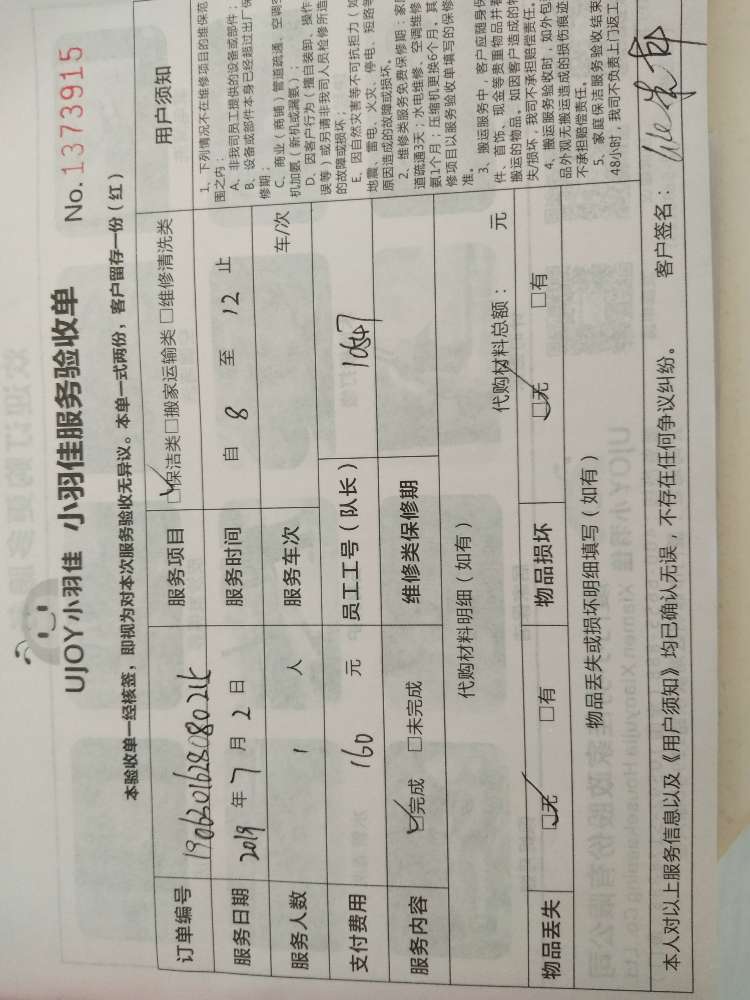 UJOY小羽佳 小羽佳服务验收单
No.1373915
本验收单一经核签，即视为对本次服务验收无异议。本单一式两份，客户留存一份（红）
订单编号
服务项目 □保洁类□搬家运输类 □维修清洗类
服务日期 2019 年 7 月 2 日 服务时间 自 8 至 12 止
服务人数 1 人 服务车次 车/次
支付费用 160 元 员工工号（队长） 10847
服务内容 □完成 □未完成 维修类保修期
代购材料明细（如有） 代购材料总额： 元
物品丢失 □无 □有 物品损坏 □无 □有
物品丢失或损坏明细填写（如有）
本人对以上服务信息以及《用户须知》均已确认无误，不存在任何争议纠纷。 客户签名：
用户须知
1、下列情况不在维修项目的维保范
围之内：
A、非我司员工提供的设备或部件；
B、设备或部件本身已经超过出厂保
修期；
C、商业（商铺）管道疏通、空调
机加氨（新机或漏氨）；
D、因客户行为（擅自装卸、操作
误等）或另请非我司人员检修所造
的故障或损坏；
E、因自然灾害等不可抗拒力（如
地震、雷电、火灾、停电、短路等
原因造成的故障或损坏。
2、维修类服务免费保修期：家
道疏通3天；水电维修、空调维修
氨1个月；压缩机更换6个月，其
修项目以服务验收单填写的保修
准。
3、搬运服务中，客户应随身保
件、首饰、现金等贵重物品并看
搬运的物品，如因客户造成的物
失/损坏，我司不承担赔偿责任。
4、搬运服务验收时，如外包
品外观无搬运造成的损伤痕迹
不承担赔偿责任。
5、家庭保洁服务验收结束
48小时，我司不负责上门返工